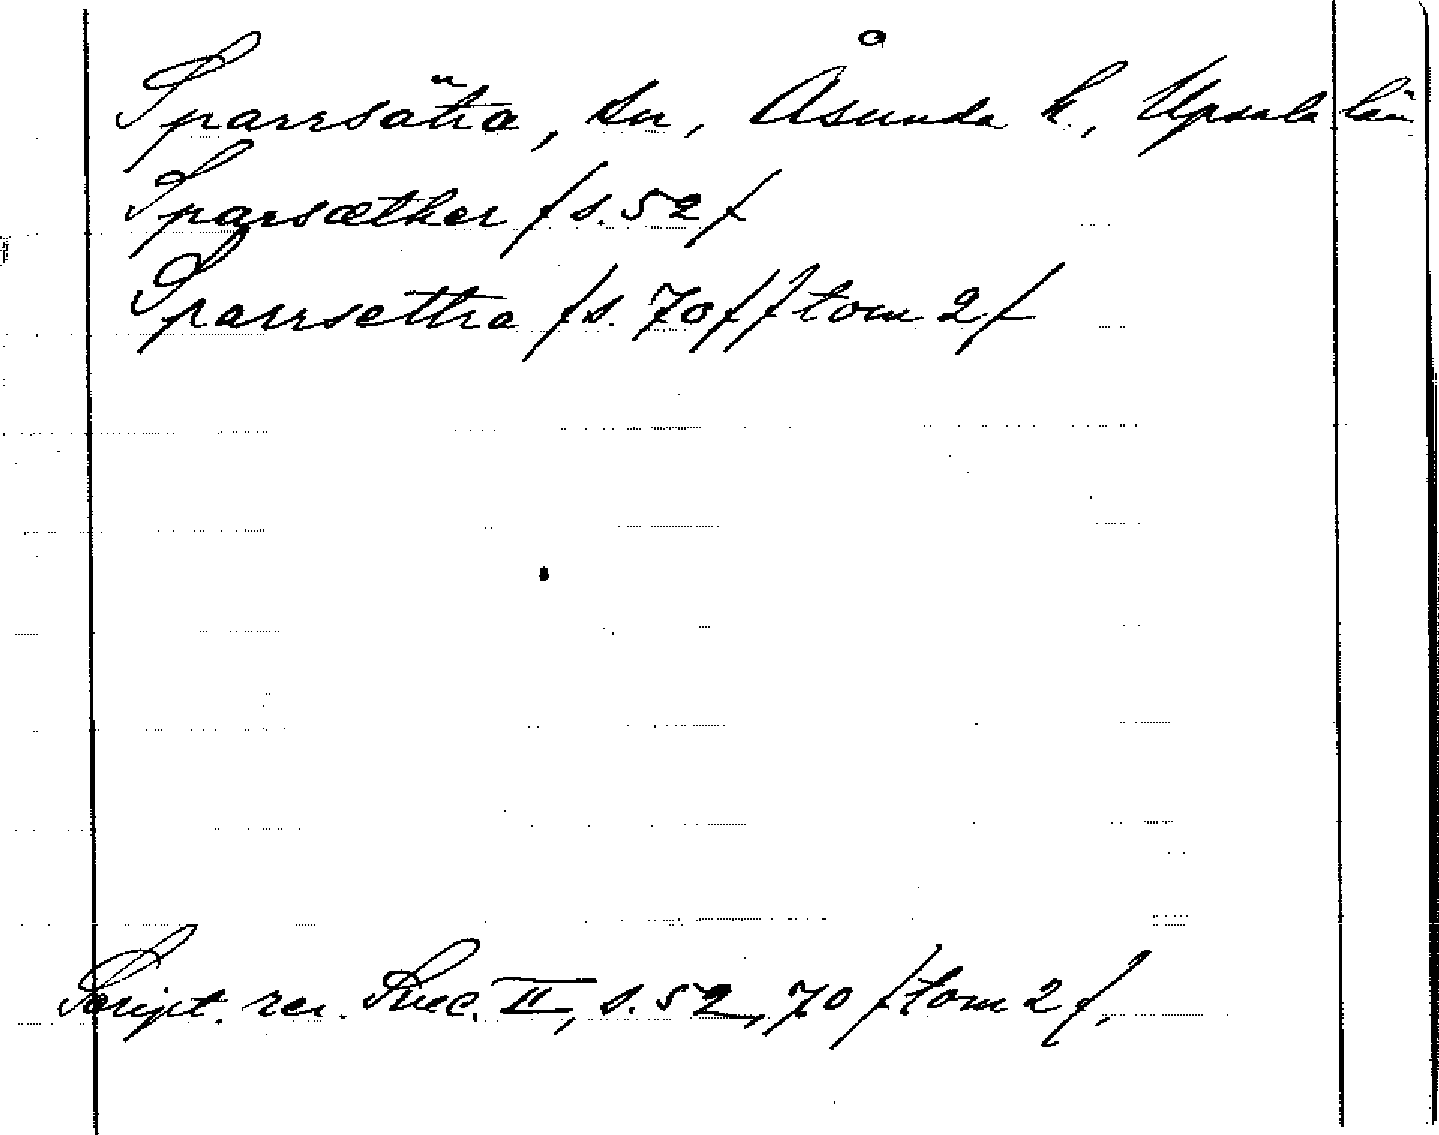 Sparrsätra, sn, Åsunda h., Upsala län
Sparsæther /s. 52/
Sparrsettra /s. 70/ /tom 2/
Script. rer. Svec. II, s. 52, 70 /tom 2/.